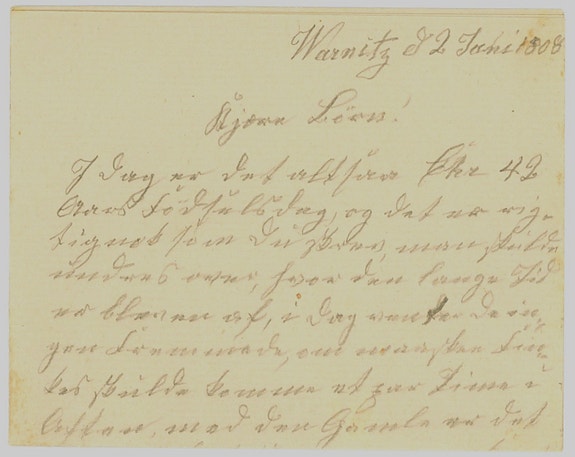 Warnitz d 2 Juni 1908
Kjære Börn!
I dag er det altsaa Chr 42
Aars Födselsdag, og det er rig-
tignok som Du skrev, man skulde
undres over, hvor den lange Tid
er bleven af, i dag venter de in-
gen Fremmede, om maaskee Fin-
kes skulde komme et par Time i
Aften, med den Gamle er det